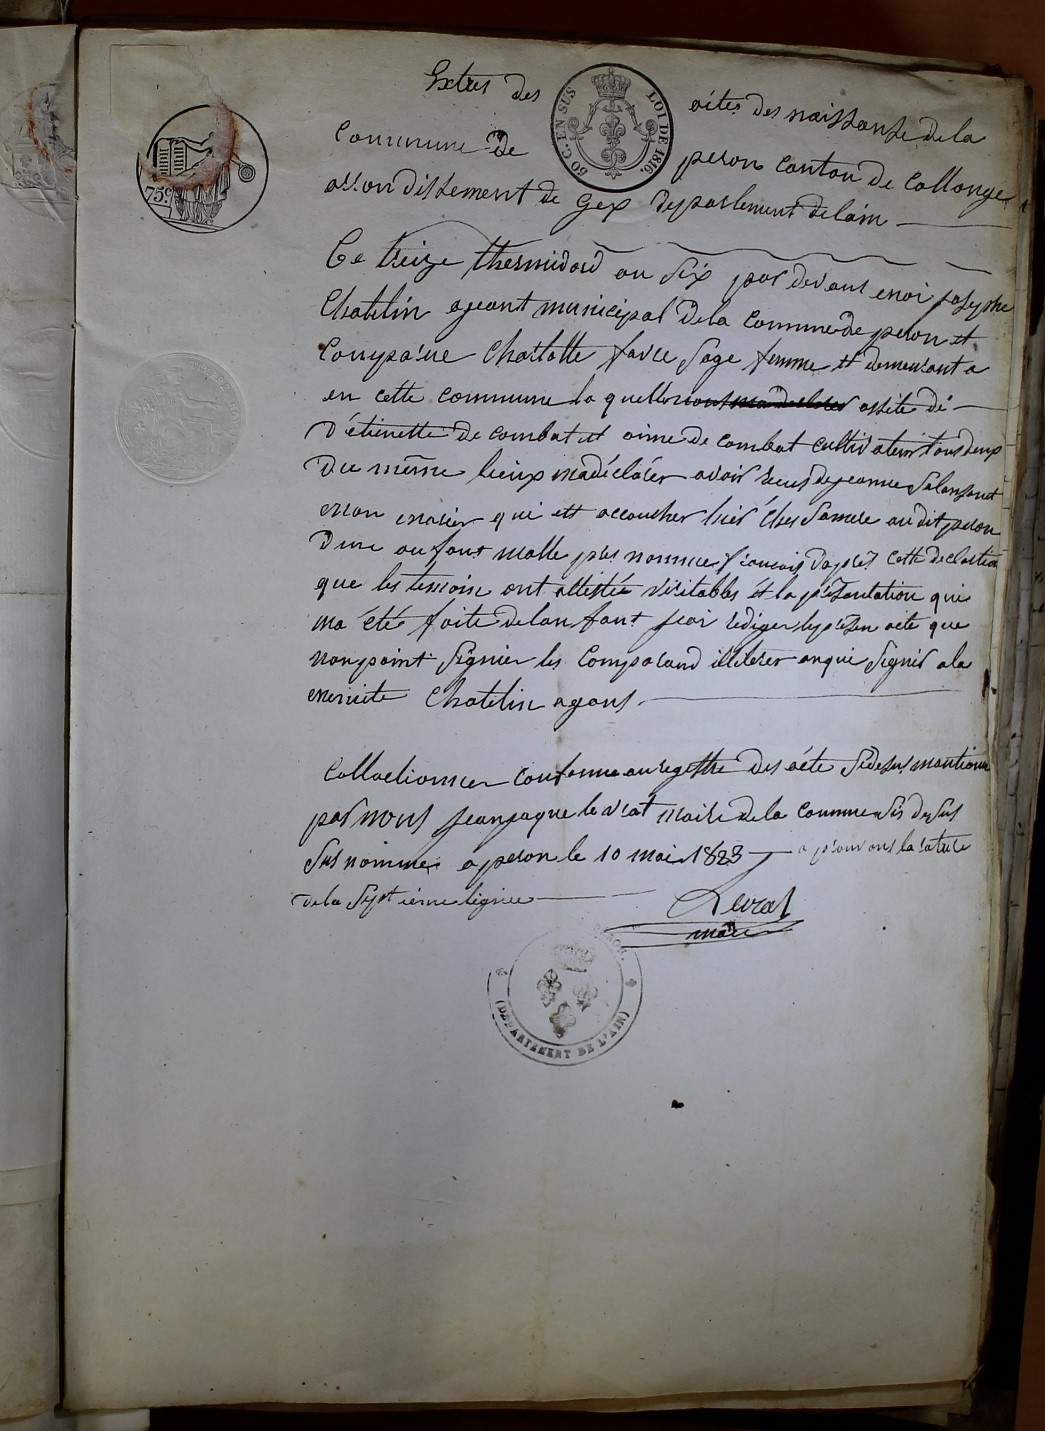 Extres des actes des naissanse de la
75 c.
50 C. EN SUS LOI DE 1816.
Commune de peron canton de Collonge
arrondissement de Gex departement de lain
Ce treize thermidord an six par devant moi josephe
Chatelin ageant municipal de la commune de peron et
Comparue Charlotte favre sage femme et demeurant a
en cette commune la quelle assite de
D'etienette de combat et aime de combat cultivateur tous deux
Du même lieux ma déclárér avoir de jeanne
non marier qui est accoucher hier Ches au dit peron
Dun anfant malle pres nommer francois Dapres cette declartion
que les temoin ont attestée véritables et la présentation qui
ma été faite de lanfant jeai rediger le presen acte que
non point signier les comparand illiterer anqui signer a la
minute Chatelin agant
Collaetionner conforme au regestre des acte si desus mantionne
par nous jean jaque levrat maire de la commune sis desus
sus nommer a peron le 10 mai 1823 aprouvons la rature
de la sept ieme lignee
Levrat
maire
(DÉPARTEMENT DE L'AIN)